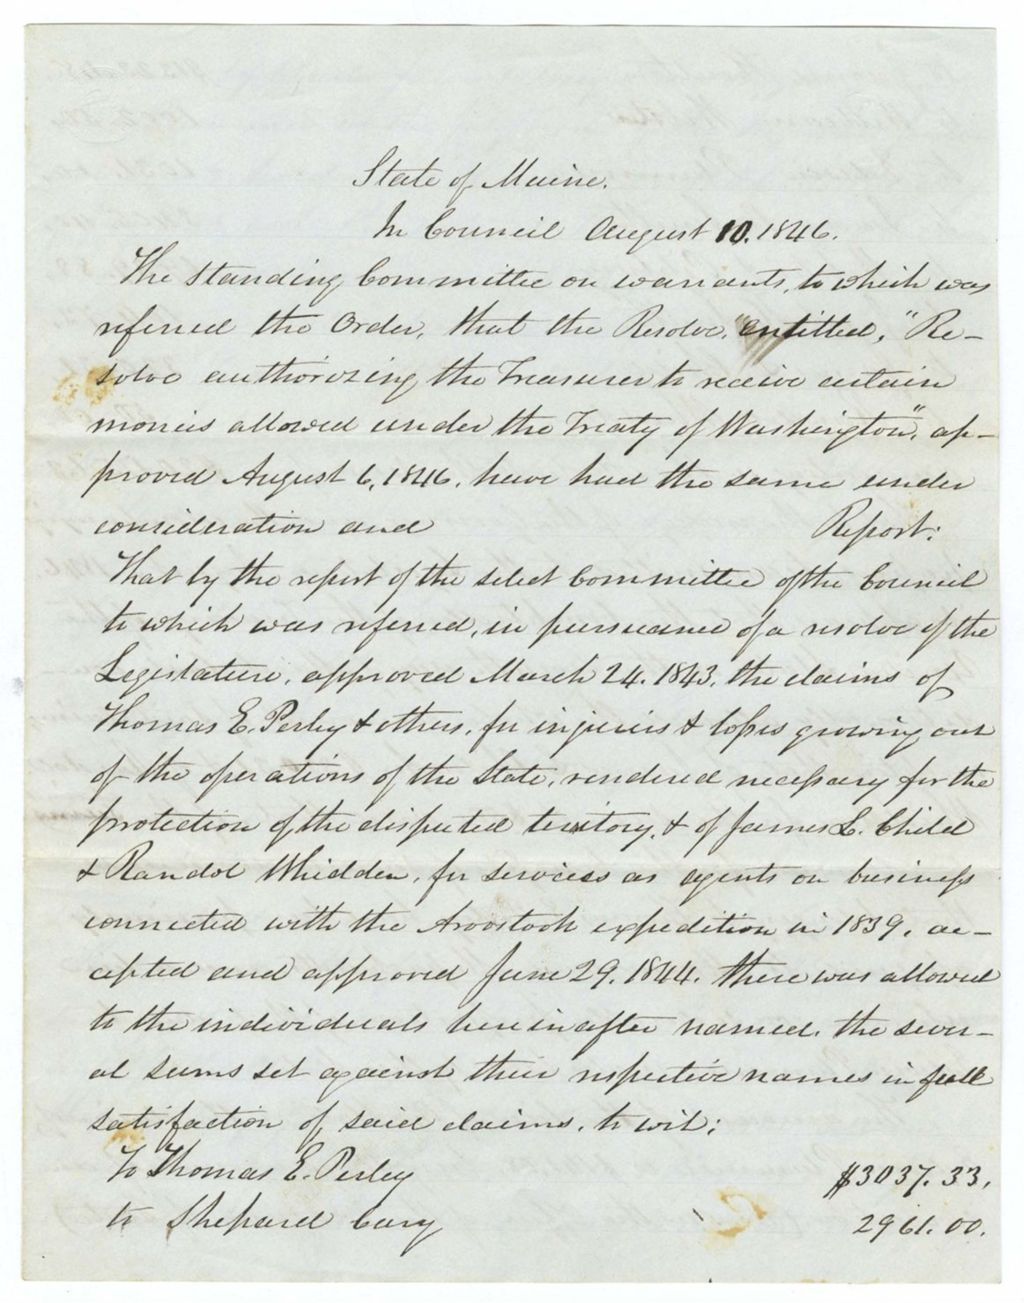 State of Maine.
In Council August 10. 1846.
The Standing Committee on warrants, to which was
referred the Order, that the Resolve, "entitled, "Re-
solve authorizing the Treasurer to receive certain
monies allowed under the Treaty of Washington", ap-
proved August 6, 1846, have had the same under
consideration and Report:
That by the report of the select Committee of the Council
to which was referred, in pursuance of a resolve of the
Legislature, approved March 24. 1843, the claims of
Thomas E. Perley & others, for injuries & losses growing out
of the operations of the State, rendered necessary for the
protection of the disputed territory, & of James L. Child
& Randol Whidden, for services as agents on business
connected with the Aroostook expedition in 1839, ac-
cepted and approved June 29. 1844. there was allowed
to the individuals hereinafter named, the sever-
al sums set against their respective names in full
satisfaction of said claims, to wit;
To Thomas E. Perley $3037.33.
to Shepard Cary 2961.00.